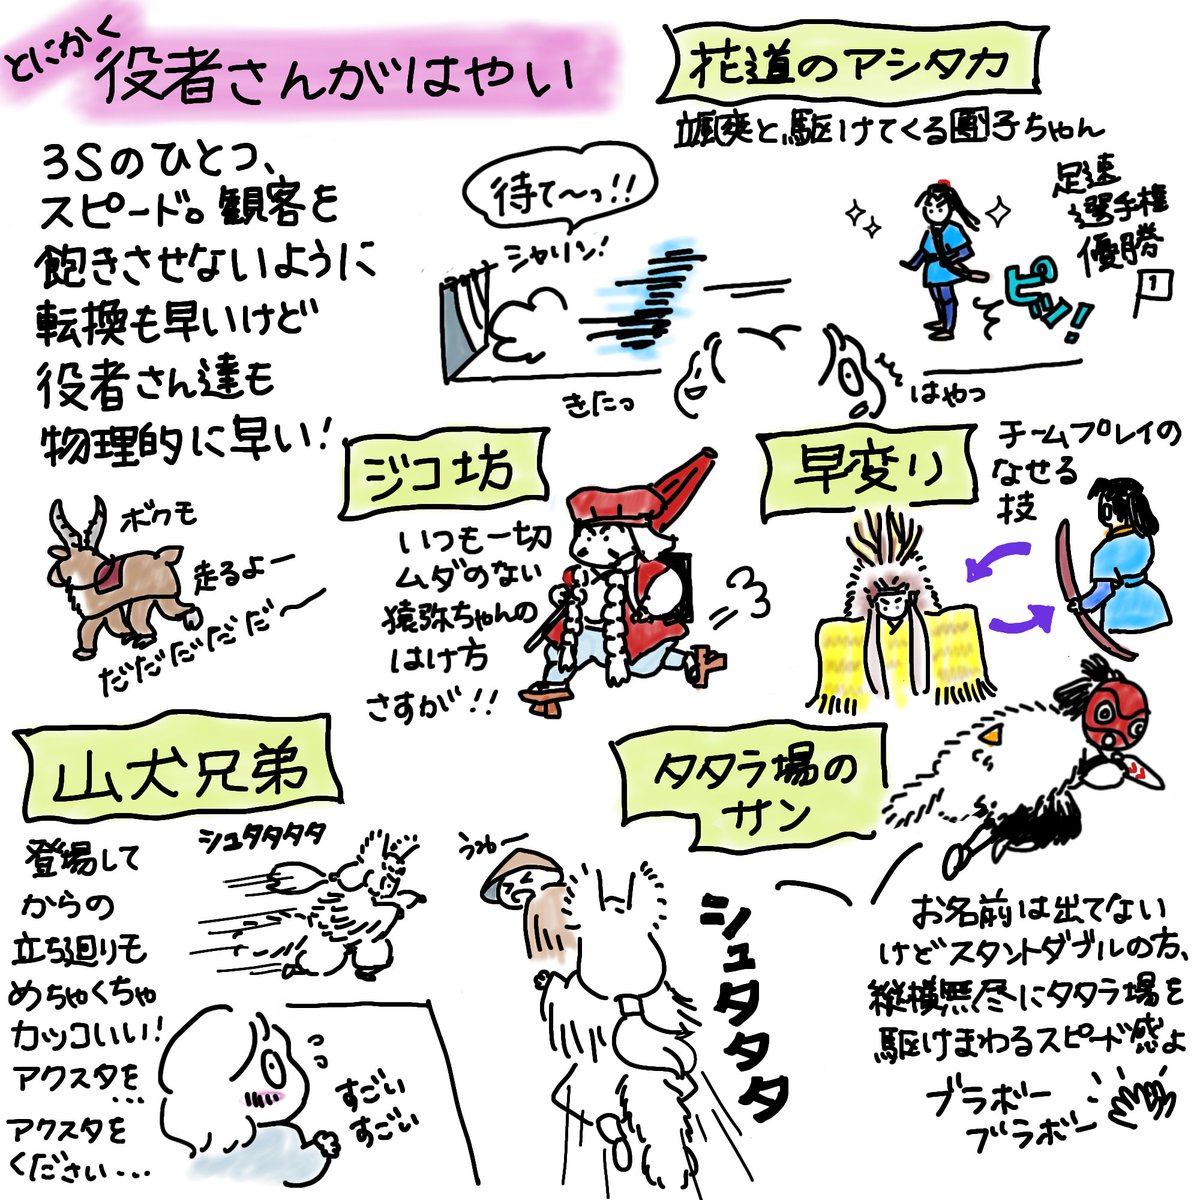 とにかく
役者さんがはやい
3Sのひとつ、
スピード。観客を
飽きさせないように
転換も早いけど
役者さん達も
物理的に早い!
花道のアシタカ
颯爽と駆けてくる團子ちゃん
待て〜っ!!
シャリン!
足速
選手権
優勝
1
ピッ!
きたっ
はやっ
ボクも
走るよー
だだだだだ〜
ジコ坊
いつも一切
ムダのない
猿弥ちゃんの
はけ方
さすが!!
早変り
チームプレイの
なせる
技
山犬兄弟
シュタタタタ
登場して
からの
立ち廻りも
めちゃくちゃ
カッコいい!
アクスタを...
アクスタを
ください...
すごい
すごい
タタラ場の
サン
うわー
シュタタタ
お名前は出てない
けどスタントダブルの方、
縦横無尽にタタラ場を
駆けまわるスピード感よ
ブラボー
ブラボー